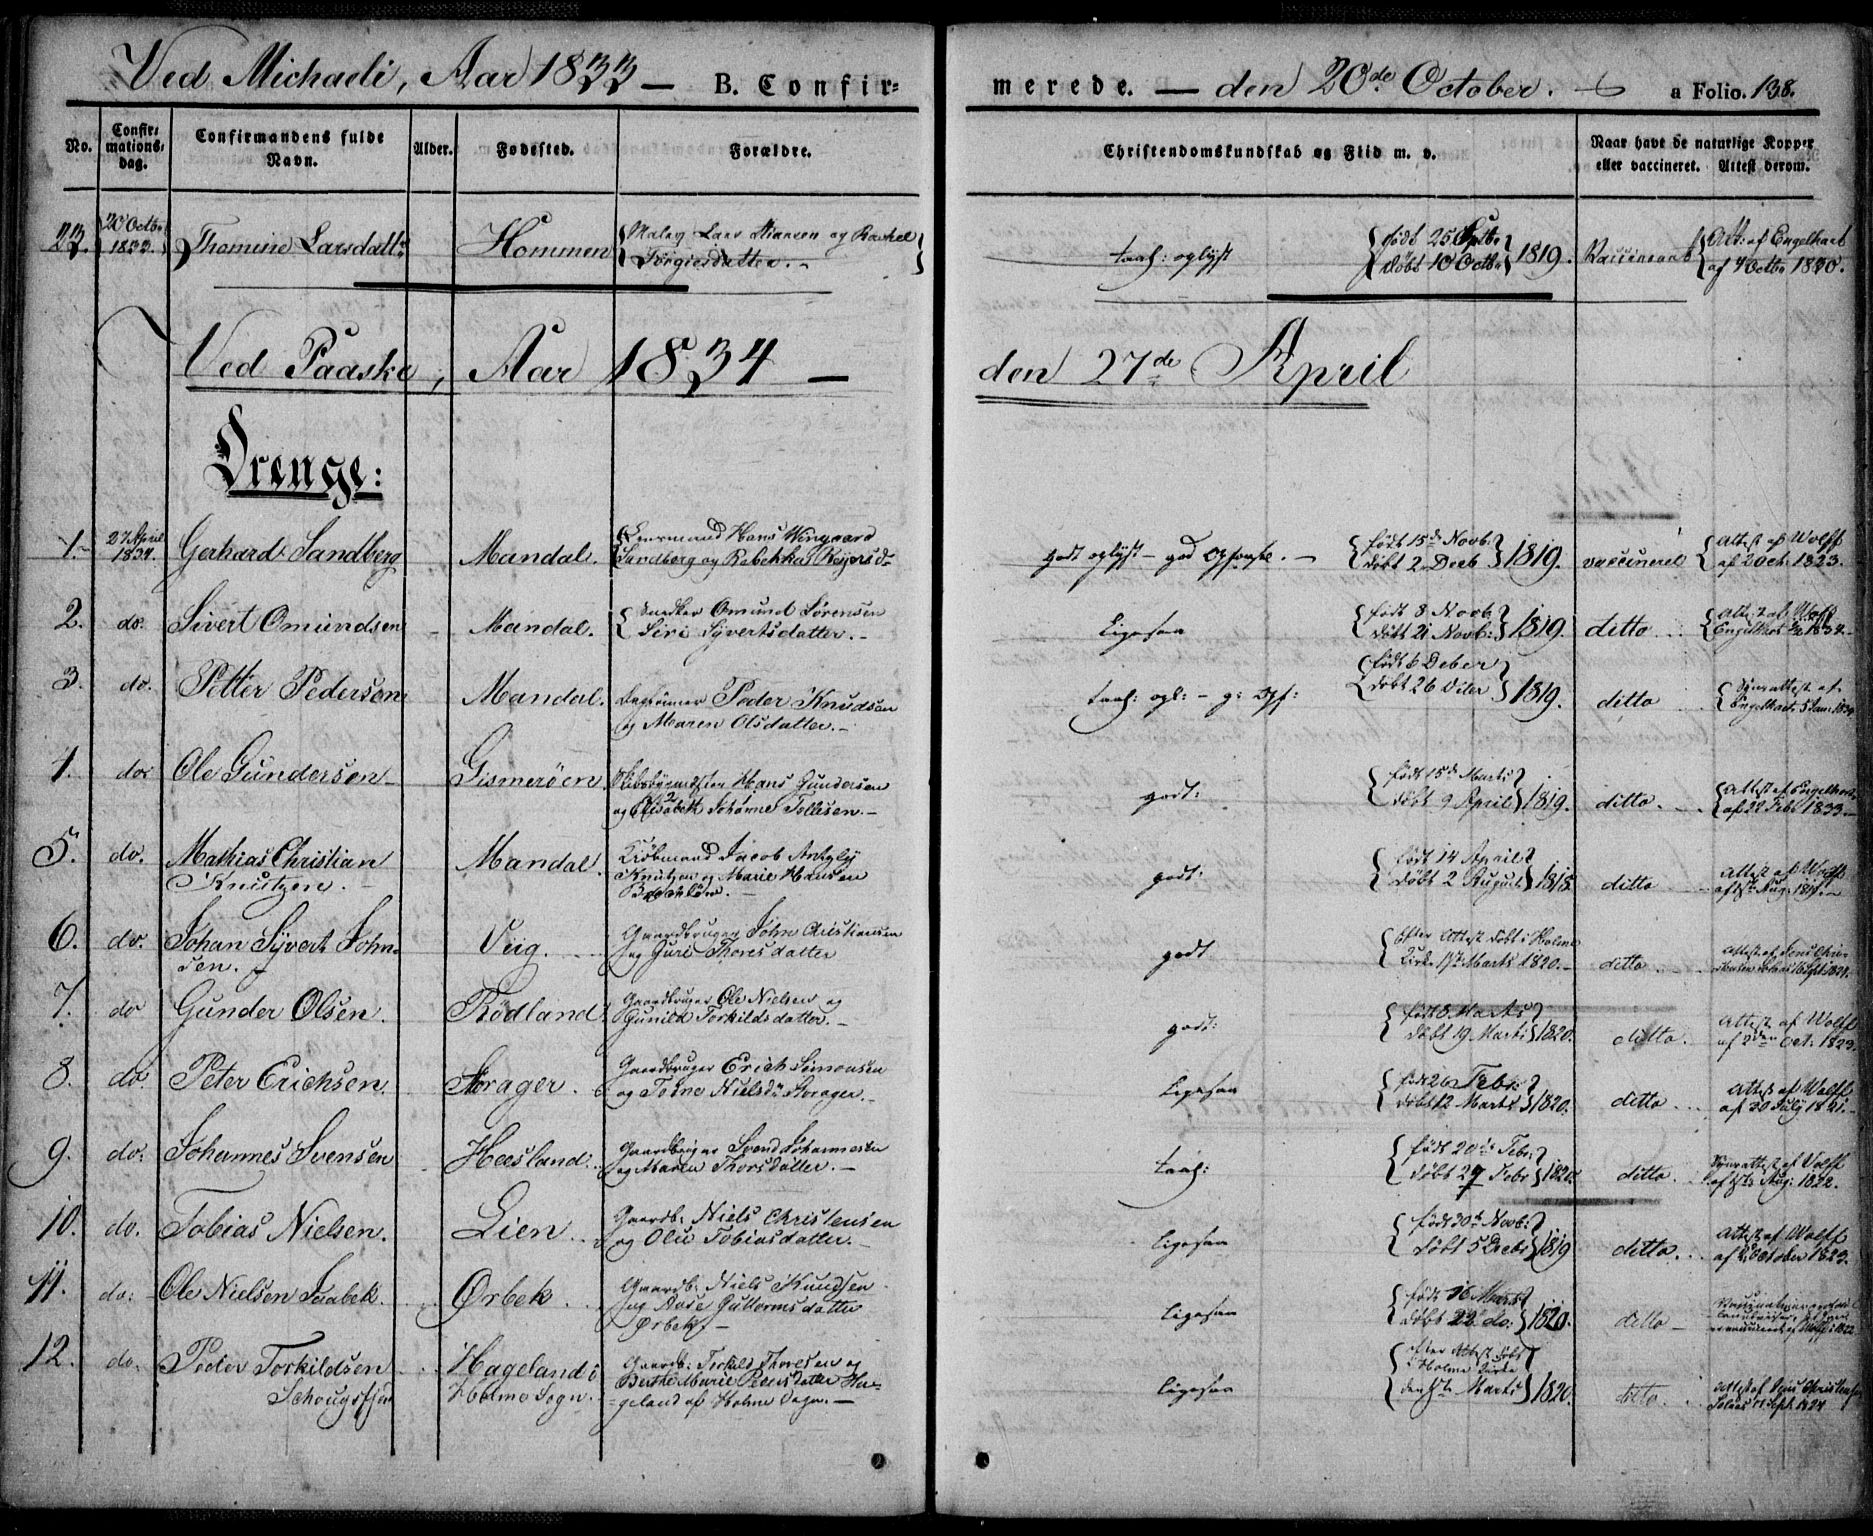 Ved Michaeli, Aar 1833 — B. Confir=
merede. — den 20de October. a Folio. 138.
No. Confir=mations=dag. Confirmandens fulde Navn. Alder. Fødested. Forældre. Christendomskundskab og Flid m. v. Naar havt de naturlige Kopper eller vaccineret. Attest derom.
23. 20 Octbr 1833. Thomine Larsdatter Hommen Lars Hansen og Rachel
Torgiersdatter. — taal: oplyst født 25 Septbr døbt 10 Octbr 1819. Att: af Engelhart af 4 Octbr 1830.
Ved Paaske, Aar 1834 —
den 27de April
Drenge:
1. 27 April 1834. Gerhard Sandberg Mandal. Lensmand Hans Wingaard
Sandberg og Rebekka Reyersd— godt oplyst — god Opførsel. — født 15de Novb: døbt 2 Decb 1819. vaccineret Attest af Wolff af 2 Oct: 1823.
2. do. Sivert Omundsen Mandal. Snedker Omund Sørensen
Siri Syvertsdatter. — Ligesaa født 8 Novb. døbt 21 Novb: 1819. ditto Engelhart 1834.
3. do. Petter Pedersen Mandal. Peder Knudsen
og Maren Olsdatter. — taal: opl: — g: Opf: født 6 Deber døbt 26 Diter 1819. ditto Synsattest af Engelhart 5 Jan: 1834
4. do: Ole Gundersen — Gismerøen Skibsbygmester Hans Gundersen
og Elisabeth Johanne Tollisen. — godt: født 15de Marts døbt 9 April 1819. ditto. Attest af Engelhart af 22 Febr 1833. —
5. do. Mathias Christian
Knutzen. — Mandal. Kiøbmand Jacob
Knutzen og Marie Hansen
godt: født 14 April døbt 2 August 1818. ditto Attest af Wolff
6. do. Johan Syvert John=
sen. Vig. Gaardbruger John Christiansen
og Guri Thoresdatter godt Efter Attest døbt i Holme
Kirke 17 Marts 1820. — ditto Attest af Jens Chri=
7. do Gunder Olsen. Rødland Gaardbruger Ole Nielsen og
Gunild Torkildsdatter. — godt: født 8 Marts døbt 19 Marts 1820. ditto. Attest af Wolff af 2den Oct: 1823.
8. do Peter Erichsen Storager. Gaardbruger Erich Simonsen
og Tobine Nielsd: Storager. — Ligesaa født 26 Febr: døbt 12 Marts 1820. ditto Attest af Wolff af 30 July 1821. —
9. do: Johannes Svensen Heesland Gaardbruger Svend Johannesen
og Maren Thorsdatter. — taal: født 20de Febr: døbt 27 Febr 1820. ditto Synsattest af Wolff Aug: 1822.
10. do. Tobias Nielsen. Lien Gaardb: Niels Christensen
og Olu Tobiasdatter. — Ligesaa født 30te Novb: døbt 5 Decbr 1819 ditto. Attest af Wolff af 2 October 1823.
11. do: Ole Nielsen Faabek. Ørbek Gaardb: Niels Knudsen
og Aase Guttormsdatter
Ørbek — Ligesaa født 16 Marts døbt 22 do: 1820. ditto —
12. do. Peder Torkildsen
Schougsfjør Hageland i
Holme Sogn. Gaardb: Torkild Thoresen og
Berthe Marie Pedersdatter Ha=
geland af Holme Sogn. — Ligesaa efter Attest døbt
i Holme Kirke
den 5te Marts 1820. ditto. Attest af Jens Christensen Sept. 1824